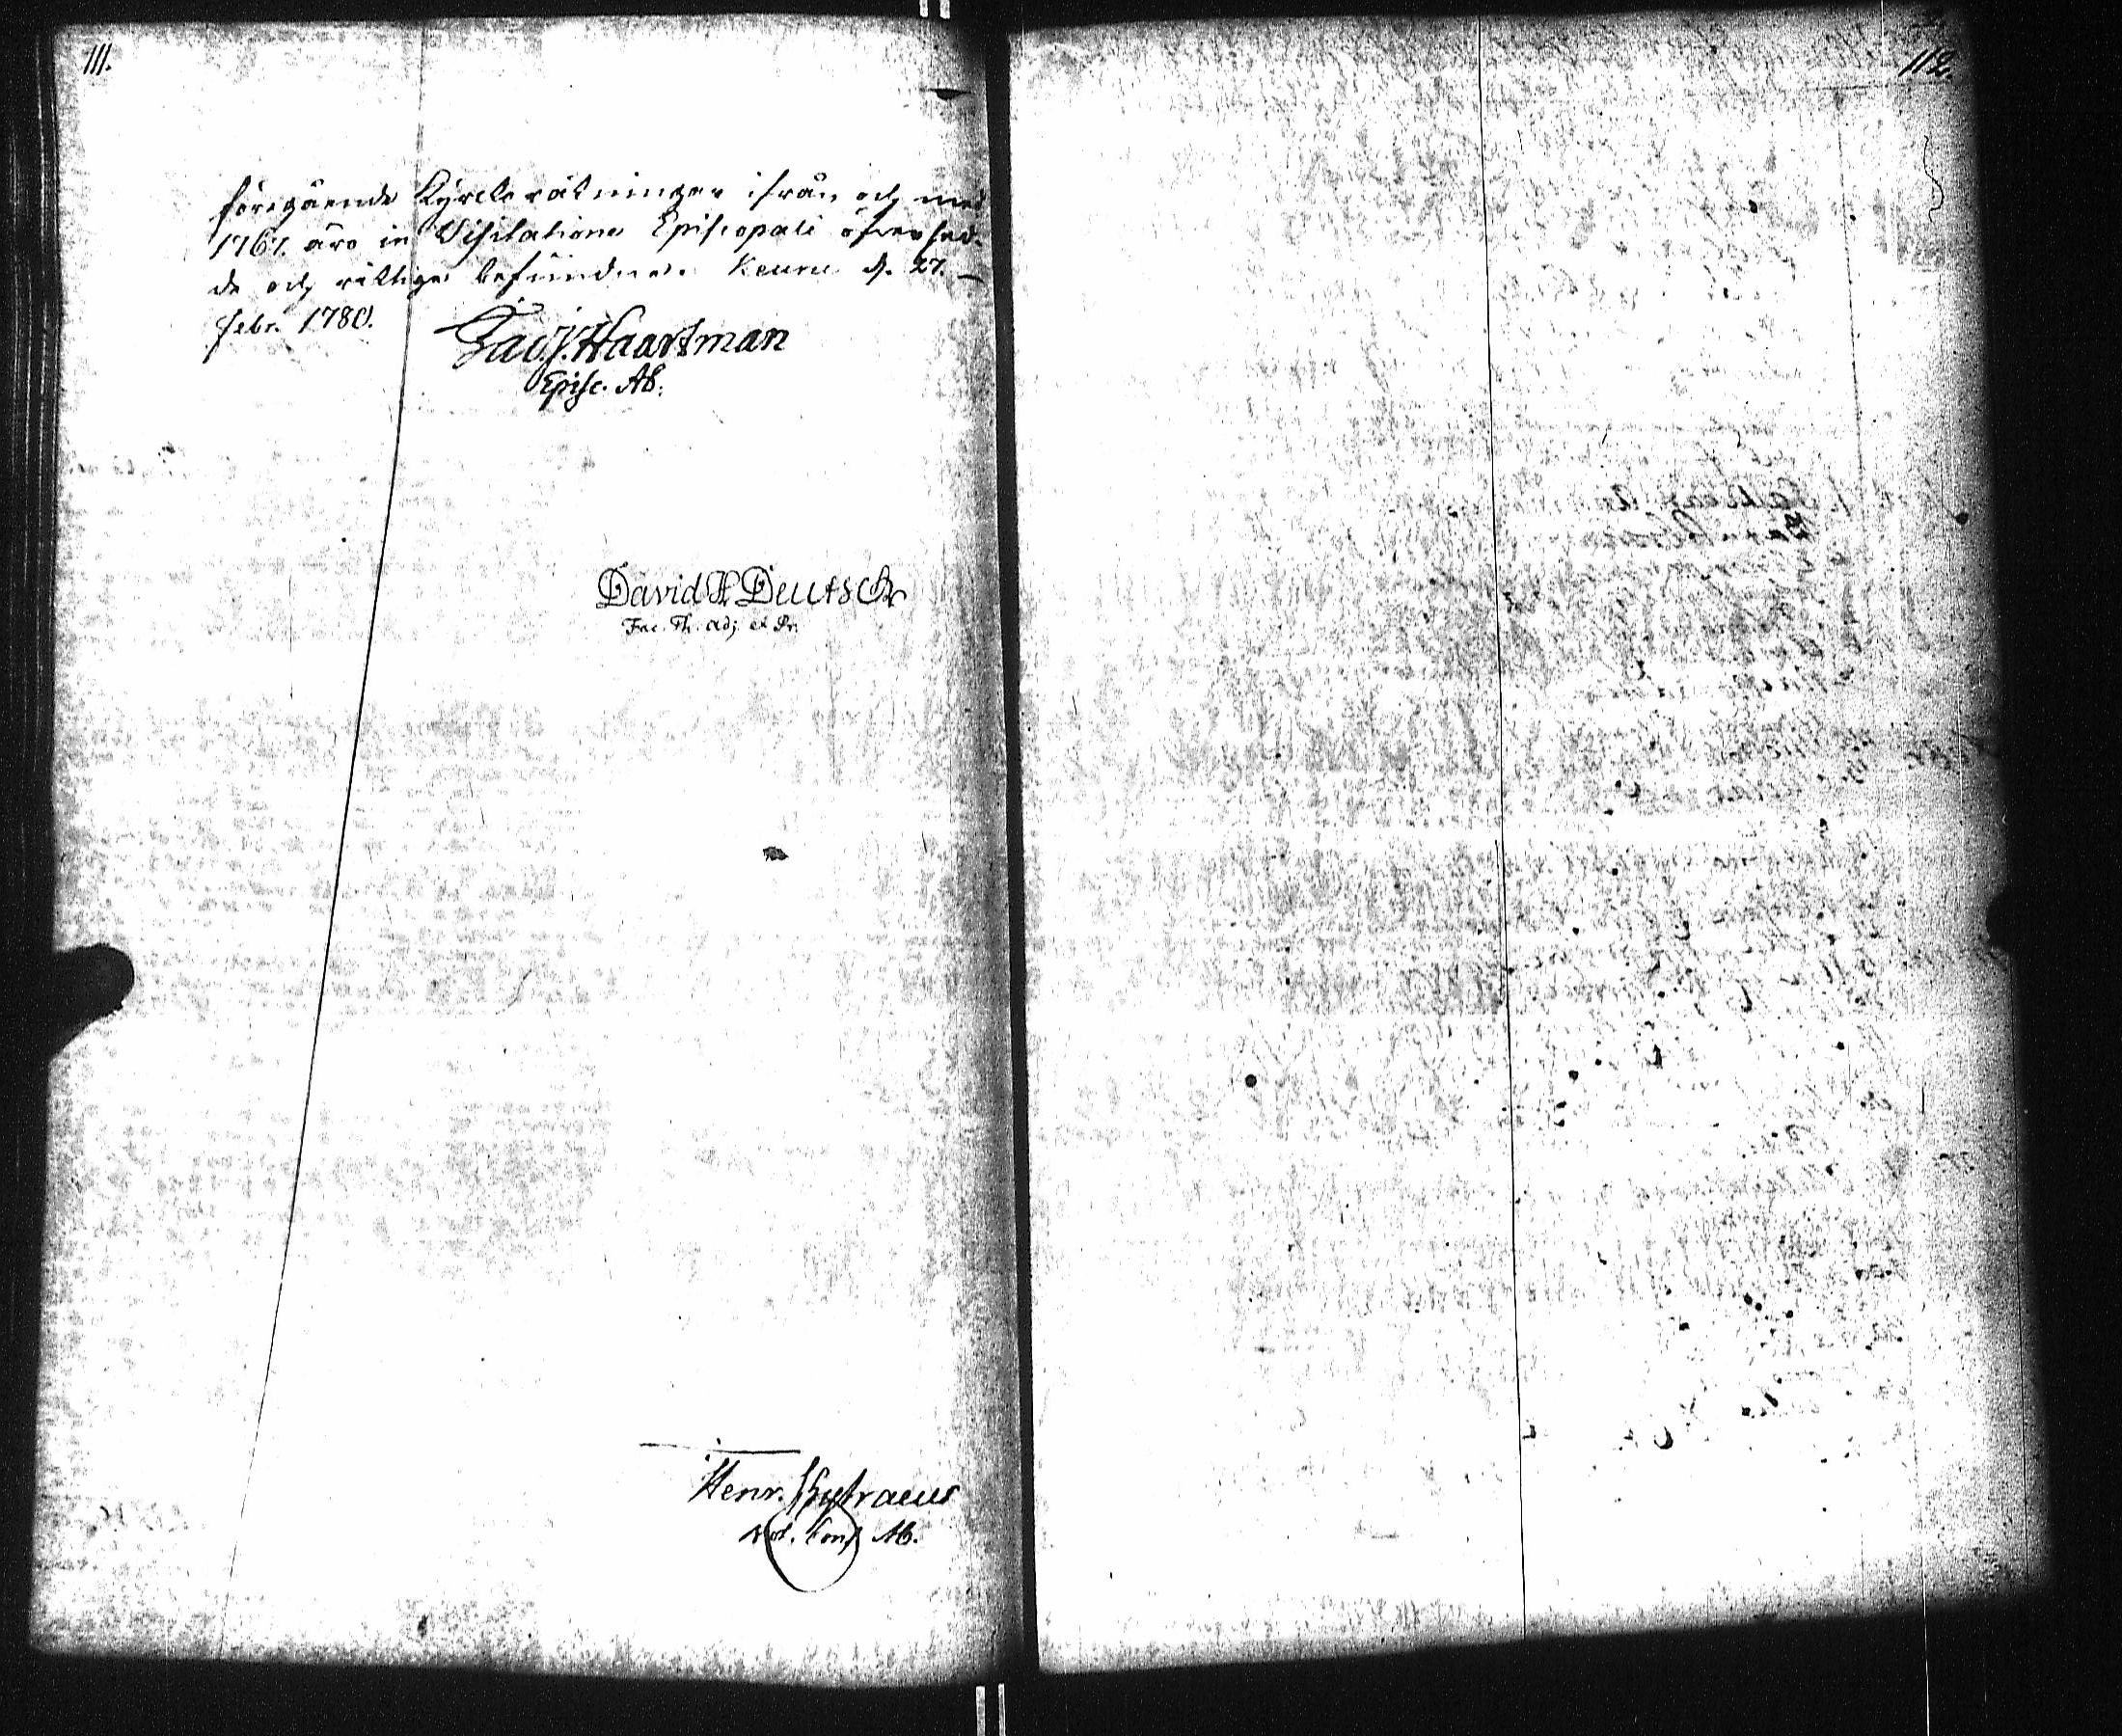 111.
föregående Kyrckoräkningar ifrån och med
1767. äro in Visitatione Episcopali öfversed-
de och riktiga befundne. Keuru d. 27. –
Febr. 1780.
Jac. J. Haartman
Episc. Ab.
David H. Deutsch
Fac. Th. Adj. et Pr.
Henr.
Not. Cons. Ab.
112.